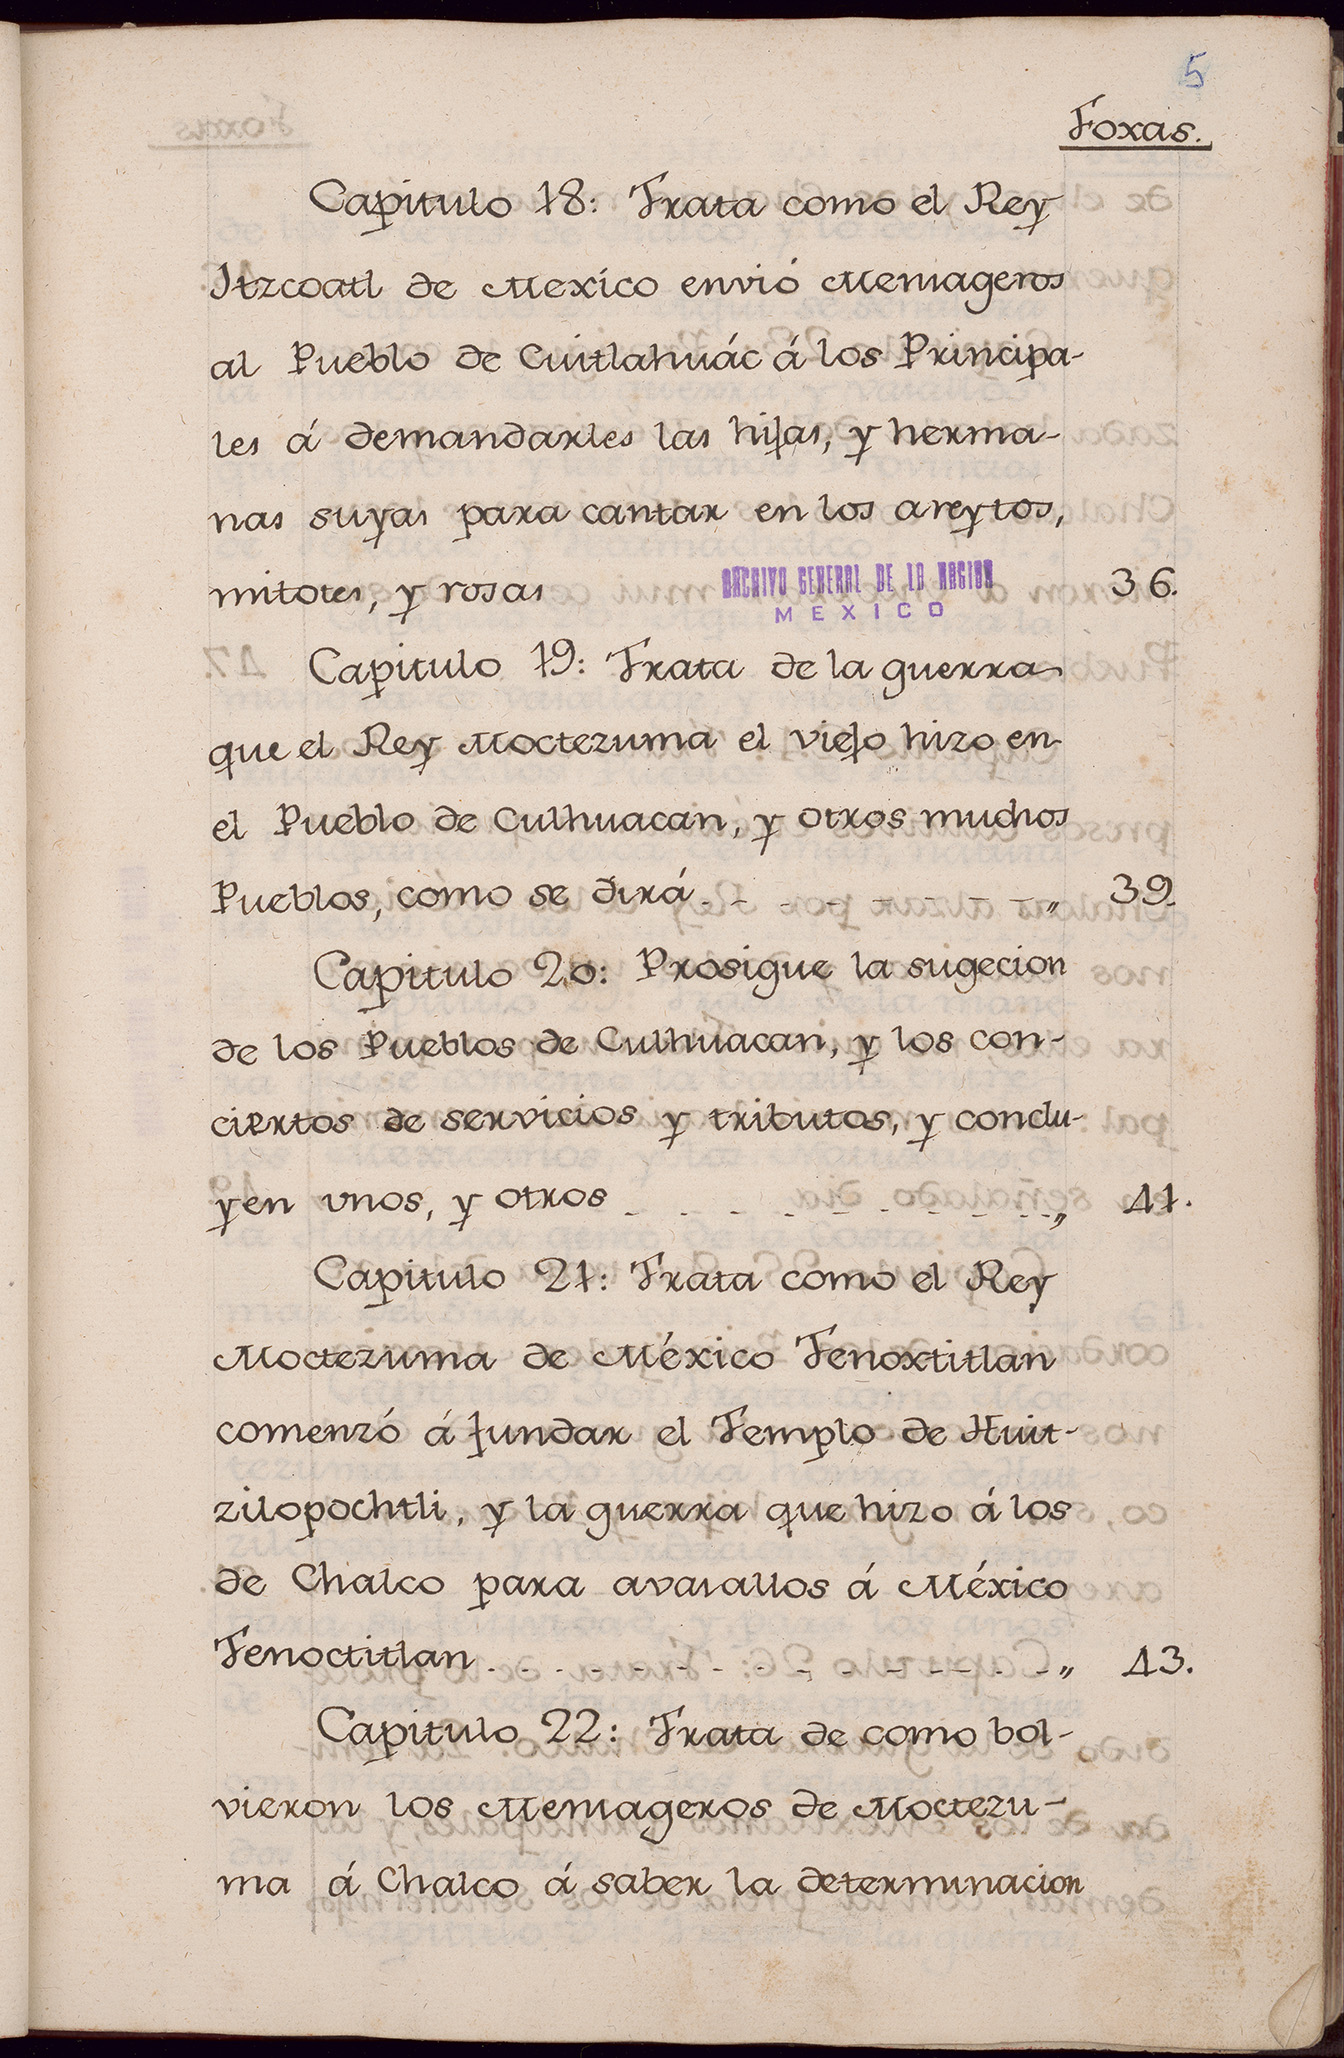 5
Foxas.
Capitulo 18: Trata como el Rey
Itzcoatl de Mexico envió Mensageros
al Pueblo de Cuitlahuác á los Principa-
les á demandarles las hijas, y herma-
nas suyas para cantar en los areytos,
mitotes, y rosas 36.
ARCHIVO GENERAL DE LA NACION
MEXICO
Capitulo 19: Trata de la guerra
que el Rey Moctezuma el viejo hizo en
el Pueblo de Culhuacan, y otros muchos
Pueblos, como se dirá - - - - - - - - - „ 39.
Capitulo 20: Prosigue la sugecion
de los Pueblos de Culhuacan, y los con-
ciertos de servicios y tributos, y conclu-
yen unos, y otros - - - - - - - - - - - „ 41.
Capitulo 21: Trata como el Rey
Moctezuma de México Tenoxtitlan
comenzó á fundar el Templo de Huit-
zilopochtli, y la guerra que hizo á los
de Chalco para avasallos á México
Tenoctitlan - - - - - - - - - - - - - - „ 43.
Capitulo 22: Trata de como bol-
vieron los Mensageros de Moctezu-
ma á Chalco á saber la determinacion